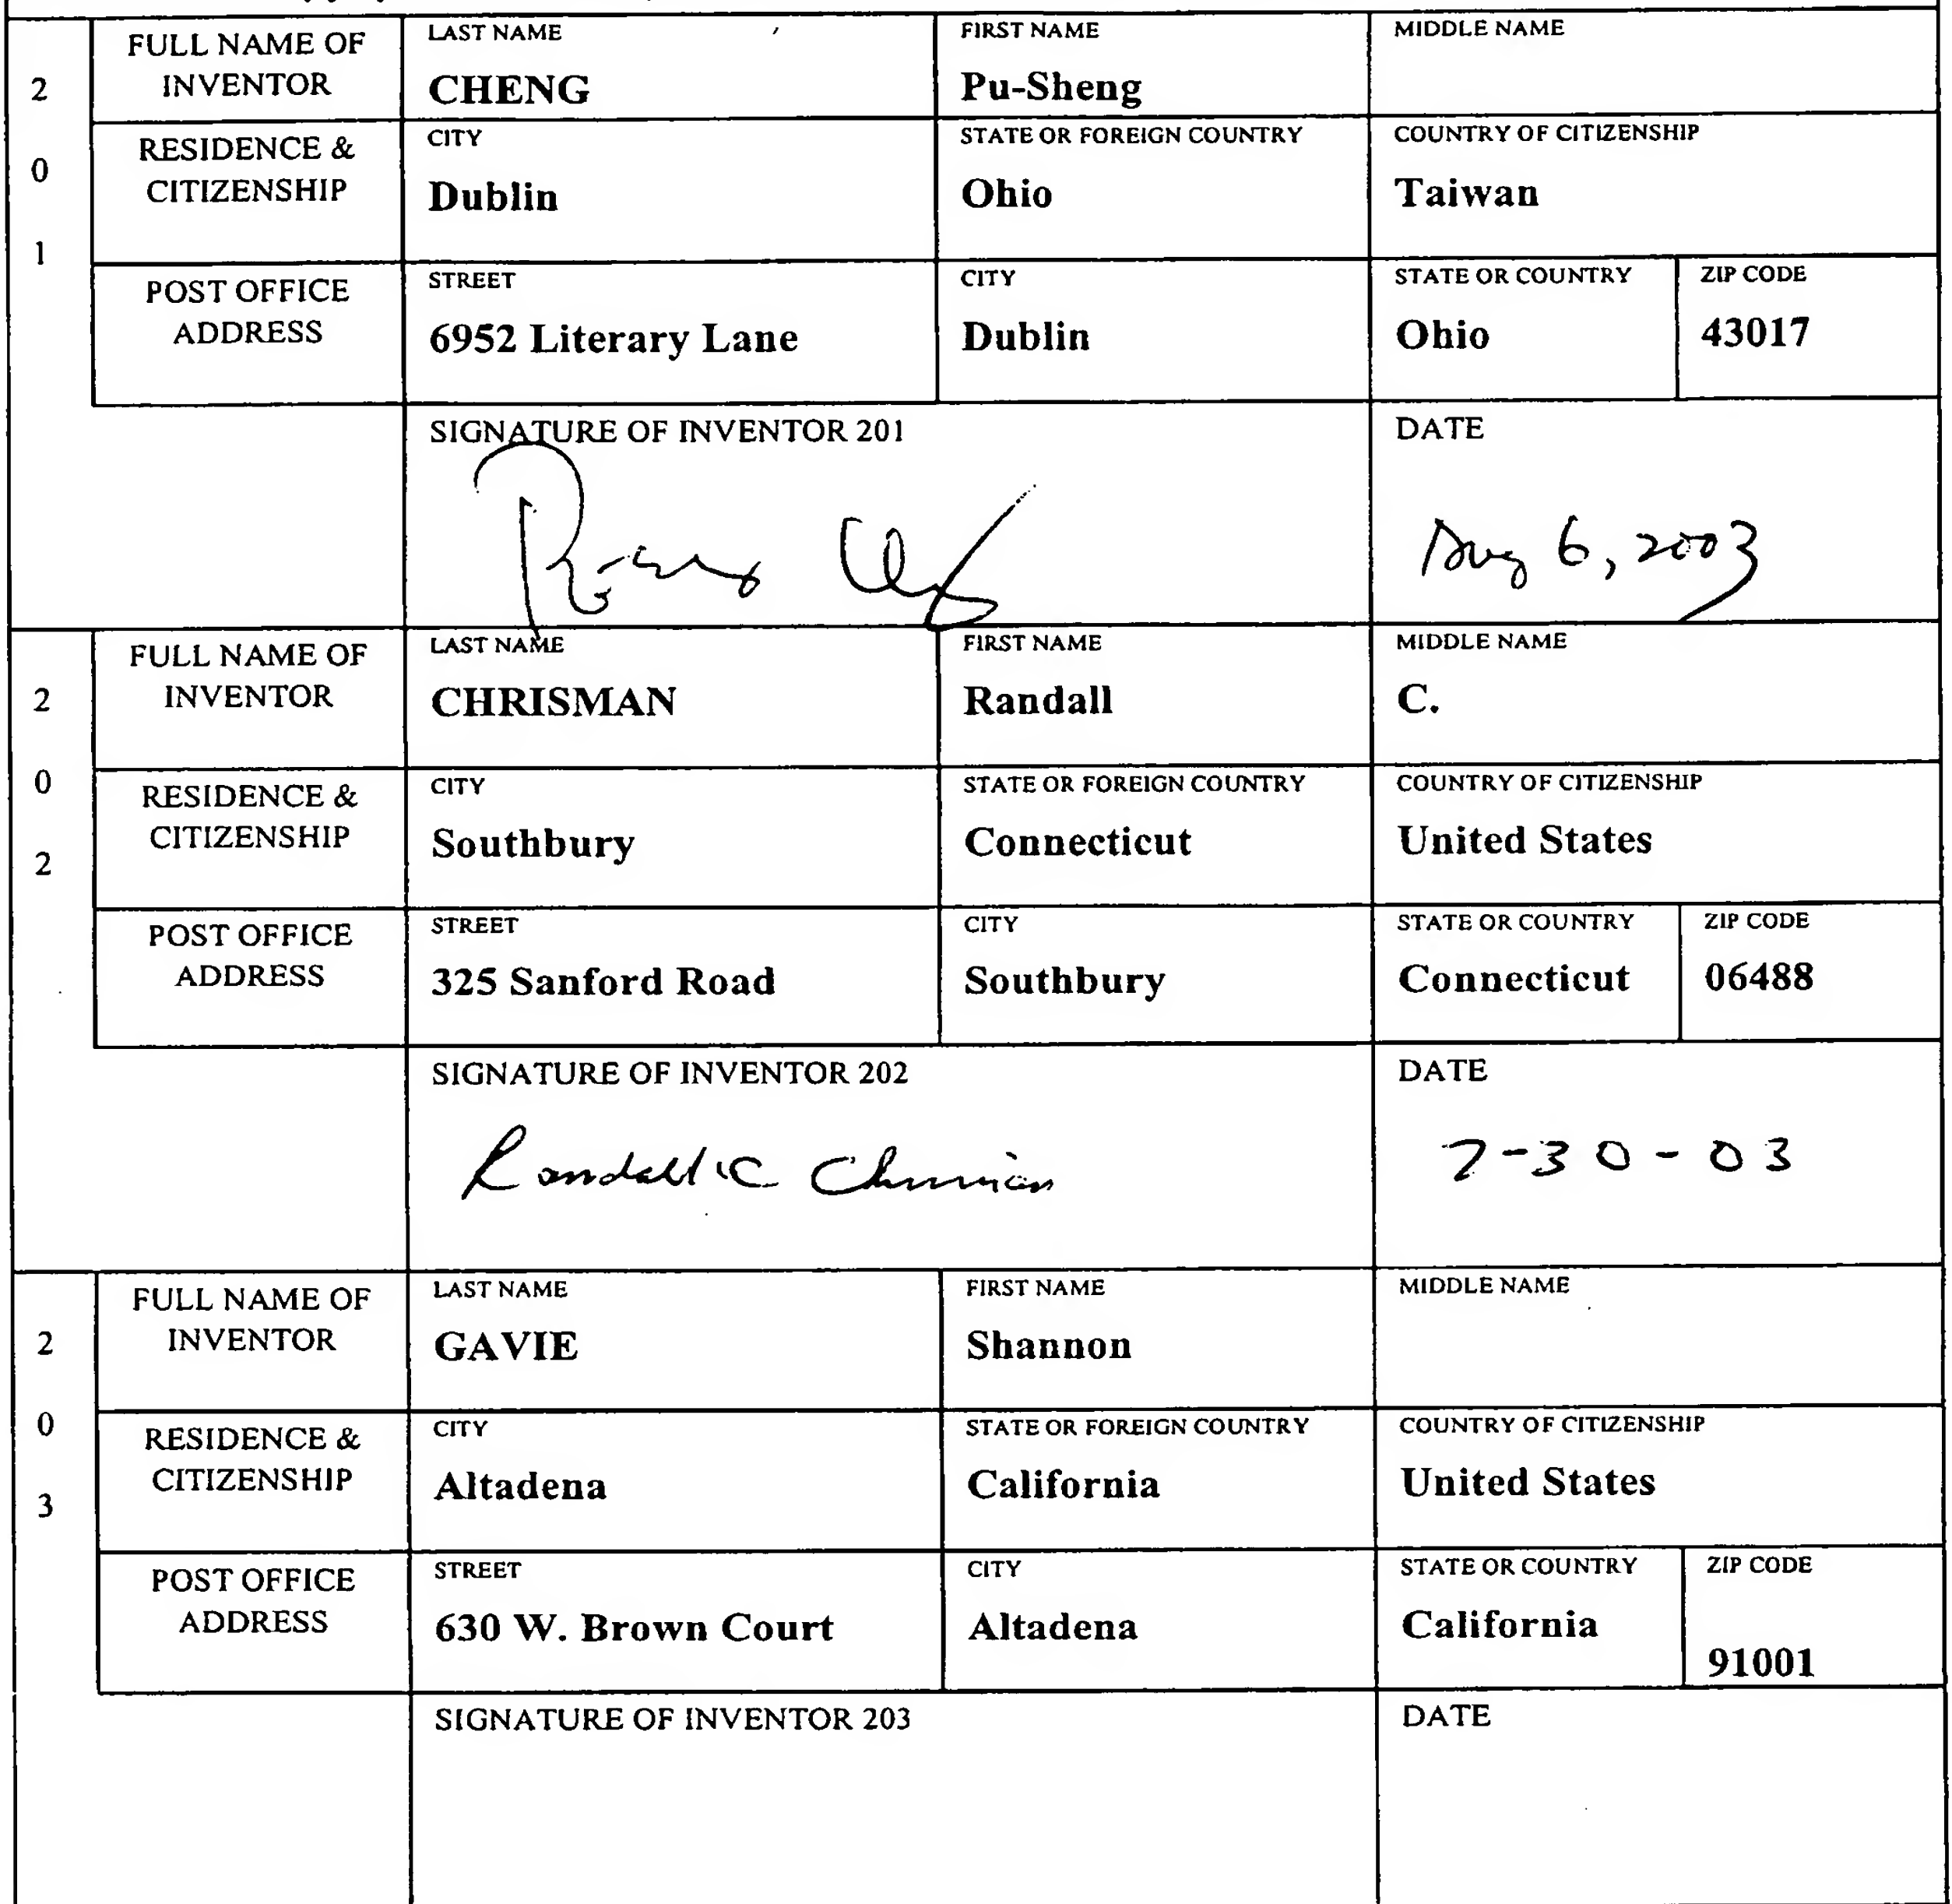 FULL NAME OF INVENTOR
LAST NAME
CHENG
FIRST NAME
Pu-Sheng
MIDDLE NAME
2
0
1
RESIDENCE & CITIZENSHIP
CITY
Dublin
STATE OR FOREIGN COUNTRY
Ohio
COUNTRY OF CITIZENSHIP
Taiwan
POST OFFICE ADDRESS
STREET
6952 Literary Lane
CITY
Dublin
STATE OR COUNTRY
Ohio
ZIP CODE
43017
SIGNATURE OF INVENTOR 201
DATE
Aug 6, 2003
FULL NAME OF INVENTOR
LAST NAME
CHRISMAN
FIRST NAME
Randall
MIDDLE NAME
C.
2
0
2
RESIDENCE & CITIZENSHIP
CITY
Southbury
STATE OR FOREIGN COUNTRY
Connecticut
COUNTRY OF CITIZENSHIP
United States
POST OFFICE ADDRESS
STREET
325 Sanford Road
CITY
Southbury
STATE OR COUNTRY
Connecticut
ZIP CODE
06488
SIGNATURE OF INVENTOR 202
Randall C Chrisman
DATE
7-30-03
FULL NAME OF INVENTOR
LAST NAME
GAVIE
FIRST NAME
Shannon
MIDDLE NAME
2
0
3
RESIDENCE & CITIZENSHIP
CITY
Altadena
STATE OR FOREIGN COUNTRY
California
COUNTRY OF CITIZENSHIP
United States
POST OFFICE ADDRESS
STREET
630 W. Brown Court
CITY
Altadena
STATE OR COUNTRY
California
ZIP CODE
91001
SIGNATURE OF INVENTOR 203
DATE